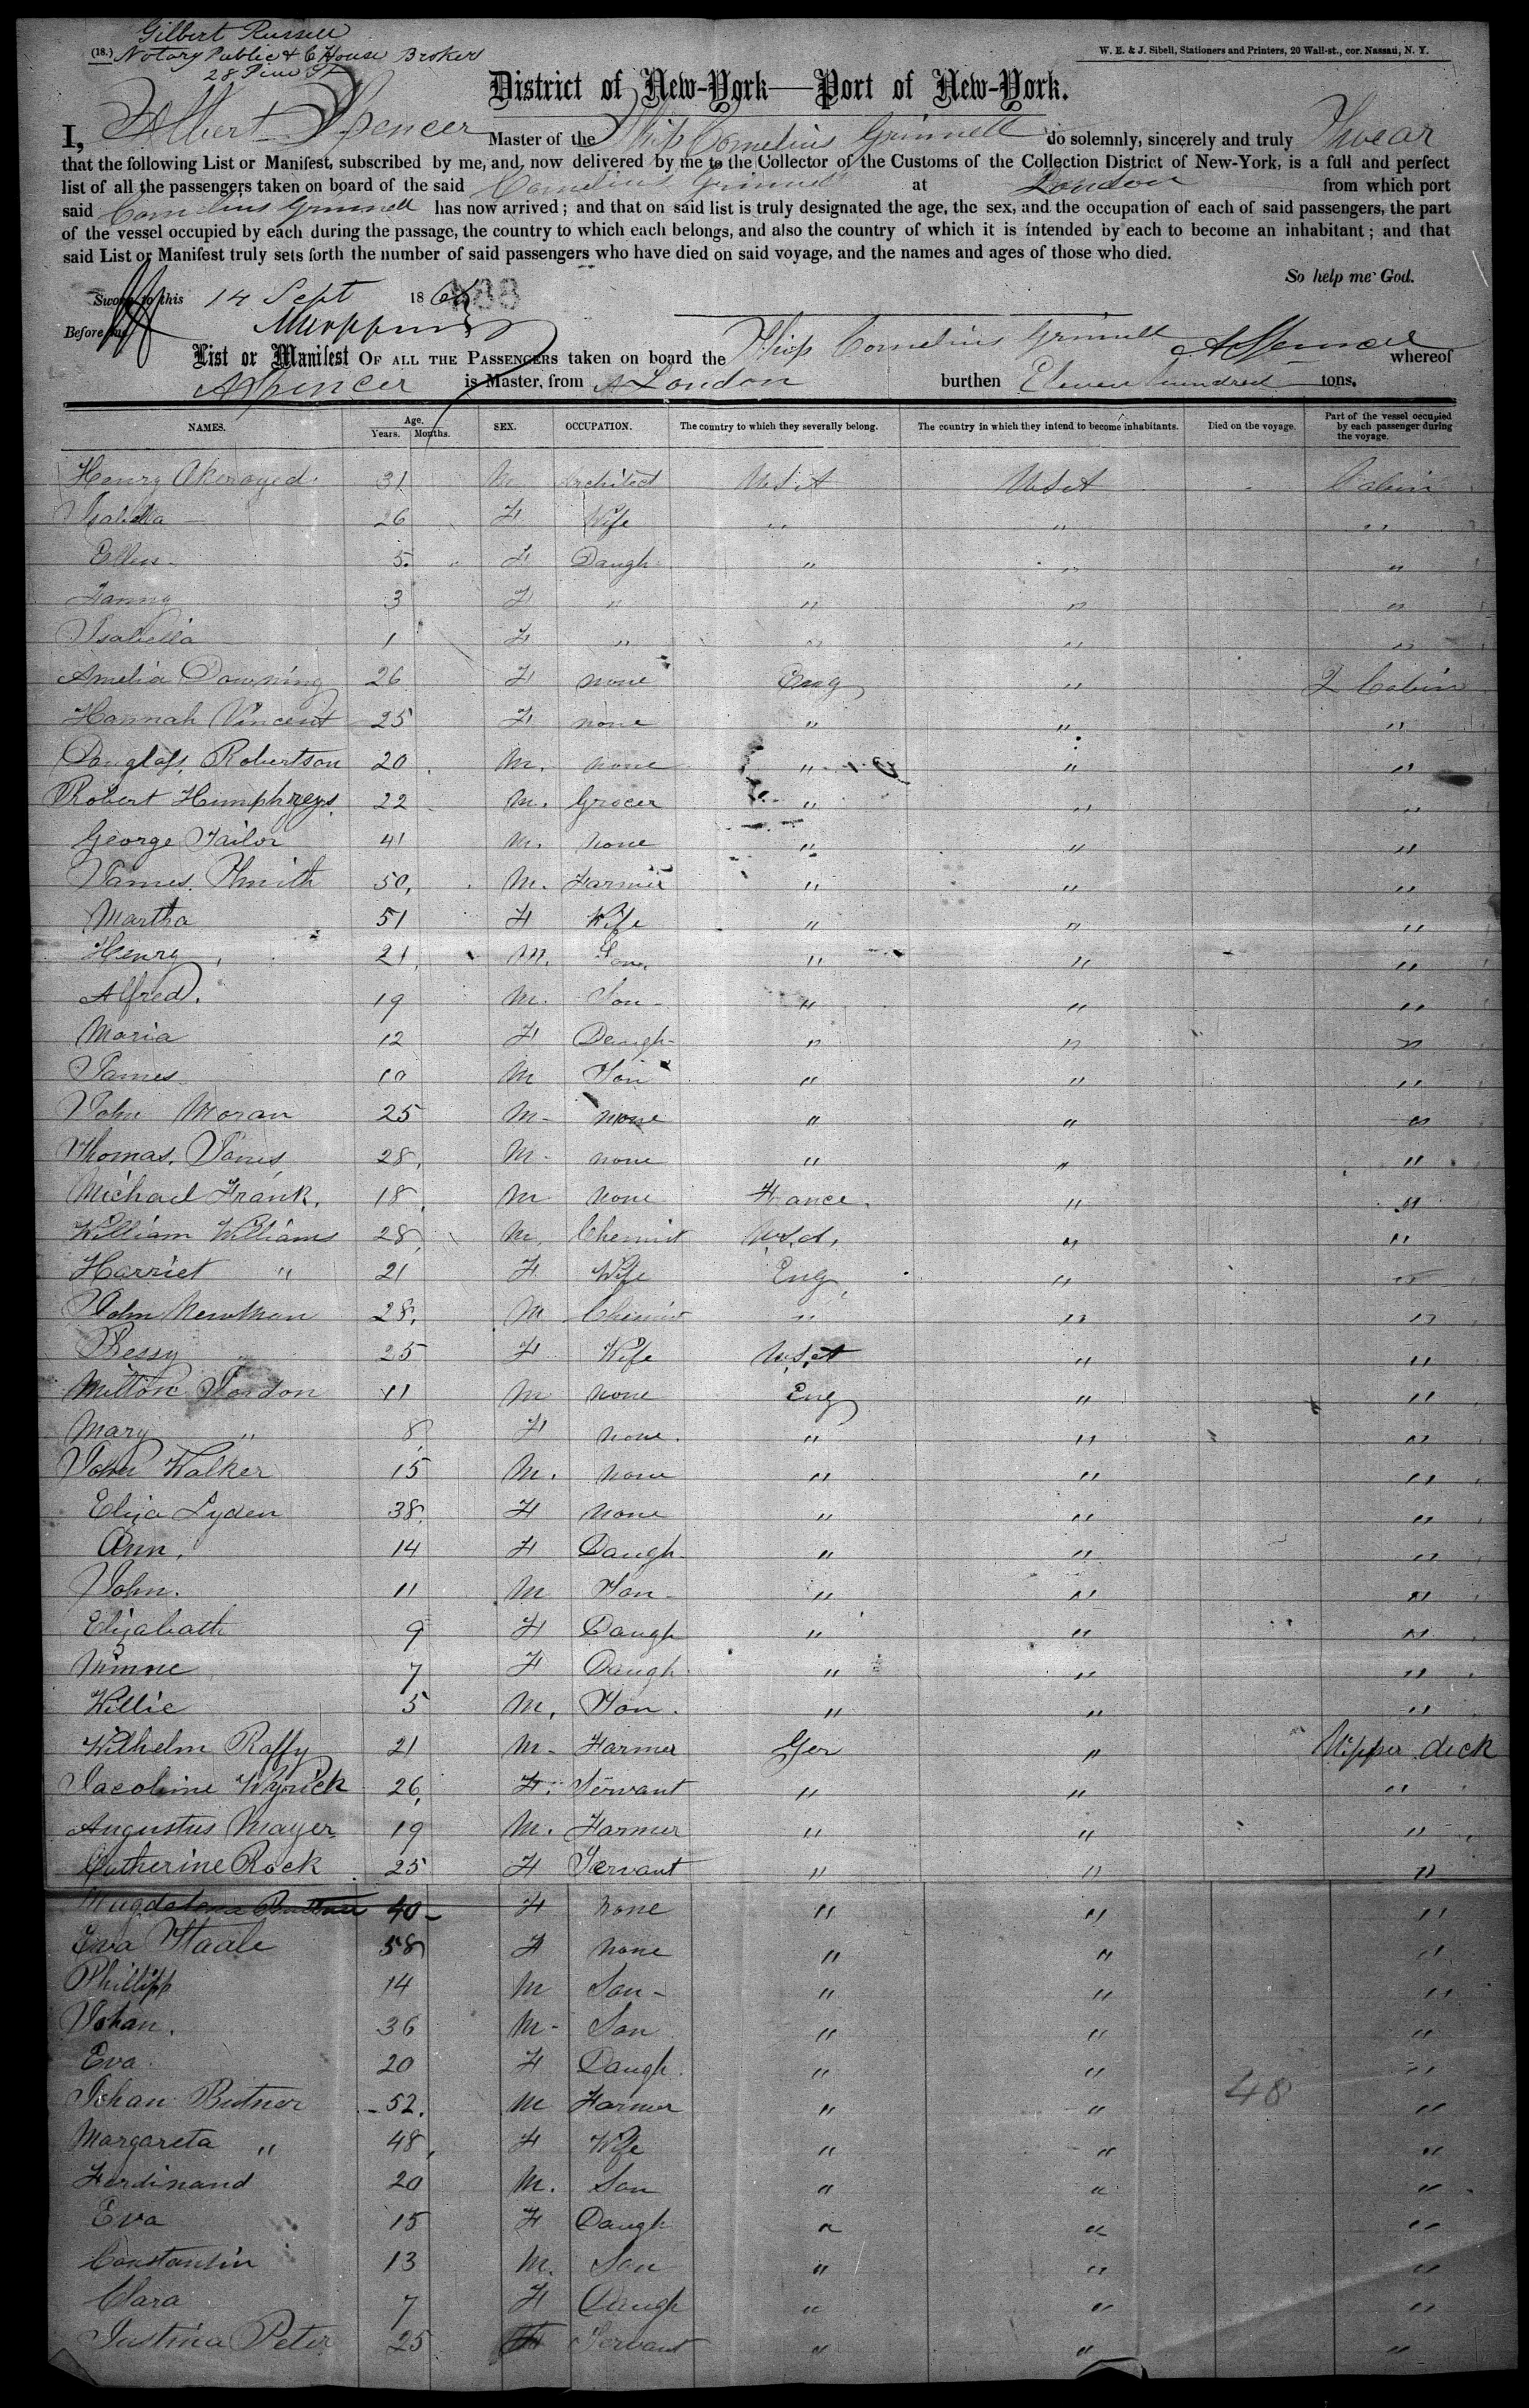 Gilbert Russell
(18.) Notary Public & C House Broker
28 Pine St
W. E. & J. Sibell, Stationers and Printers, 20 Wall-st., cor. Nassau, N. Y.
District of New-York—Port of New-York.
I, Albert Spencer Master of the Ship Cornelius Grinnell do solemnly, sincerely and truly Swear
that the following List or Manifest, subscribed by me, and now delivered by me to the Collector of the Customs of the Collection District of New-York, is a full and perfect
list of all the passengers taken on board of the said Cornelius Grinnell at London from which port
said Cornelius Grinnell has now arrived; and that on said list is truly designated the age, the sex, and the occupation of each of said passengers, the part
of the vessel occupied by each during the passage, the country to which each belongs, and also the country of which it is intended by each to become an inhabitant; and that
said List or Manifest truly sets forth the number of said passengers who have died on said voyage, and the names and ages of those who died.
So help me God.
Sworn to this 14 Sept 186
Before me
List or Manifest OF ALL THE PASSENGERS taken on board the Ship Cornelius Grinnell A Spencer whereof
A Spencer is Master, from London burthen Eleven hundred tons.
NAMES. Age. Years. Months. SEX. OCCUPATION. The country to which they severally belong. The country in which they intend to become inhabitants. Died on the voyage. Part of the vessel occupied by each passenger during the voyage.
Henry Akeroyed 31 M Architect U S A U S A Cabin
Isabella 26 F Wife " " "
Ellen 5 F Daugh " " "
Fanny 3 F " " " "
Isabella 1 F " " " "
Amelia Downing 26 F none Eng " 2 Cabin
Hannah Vincent 25 F none " " "
Douglass Robertson 20 M. none " " "
Robert Humphreys 22 M. Grocer " " "
George Tailor 41 M. none " " "
James Smith 50 M. Farmer " " "
Martha 51 F Wife " " "
Henry 21 M. Son " " "
Alfred 19 M. Son " " "
Maria 12 F Daugh " " "
James 10 M Son " " "
John Moran 25 M none " " "
Thomas Jones 28 M none " " "
Michael Frank 18 M none France " "
William Williams 28 M. Chemist U.S.A. " "
Harriet " 21 F Wife Eng " "
John Newman 28 M Chemist " " "
Bessy " 25 F Wife U.S.A " "
Milton Jordon 11 M none Eng " "
Mary " 8 F none " " "
John Walker 15 M. none " " "
Eliza Lyden 38 F none " " "
Ann 14 F Daugh " " "
John 11 M Son " " "
Elizabath 9 F Daugh " " "
Minne 7 F Daugh " " "
Willie 5 M. Son " " "
Wilhelm Raffy 21 M. Farmer Ger " Upper deck
Jacobine Wyrick 26 F. Servant " " "
Augustus Mayer 19 M. Farmer " " "
Catherine Rock 25 F Servant " " "
Magdalena 40 F none " " "
Eva Staale 58 F none " " "
Phillipp 14 M Son " " "
Johan 36 M Son " " "
Eva 20 F Daugh " " "
Johan Butner 52 M Farmer " " 48 "
Margareta " 48 F Wife " " "
Ferdinand 20 M. Son " " "
Eva 15 F Daugh " " "
Constantin 13 M. Son " " "
Clara 7 F Daugh " " "
Justina Peter 25 F Servant " " "